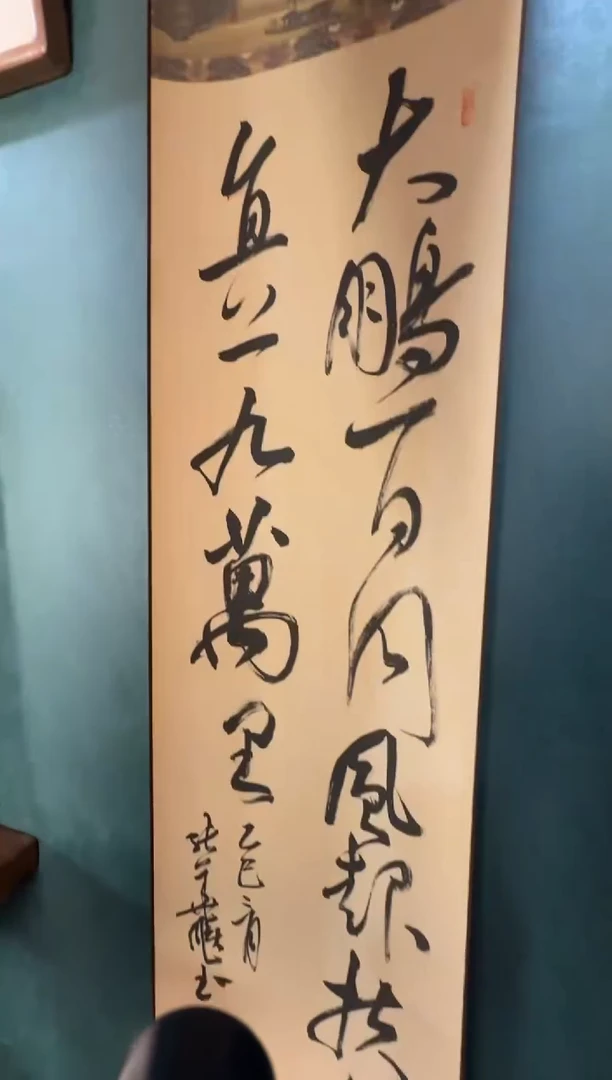 大鵬一日同風起扶
直上九萬里
乙巳